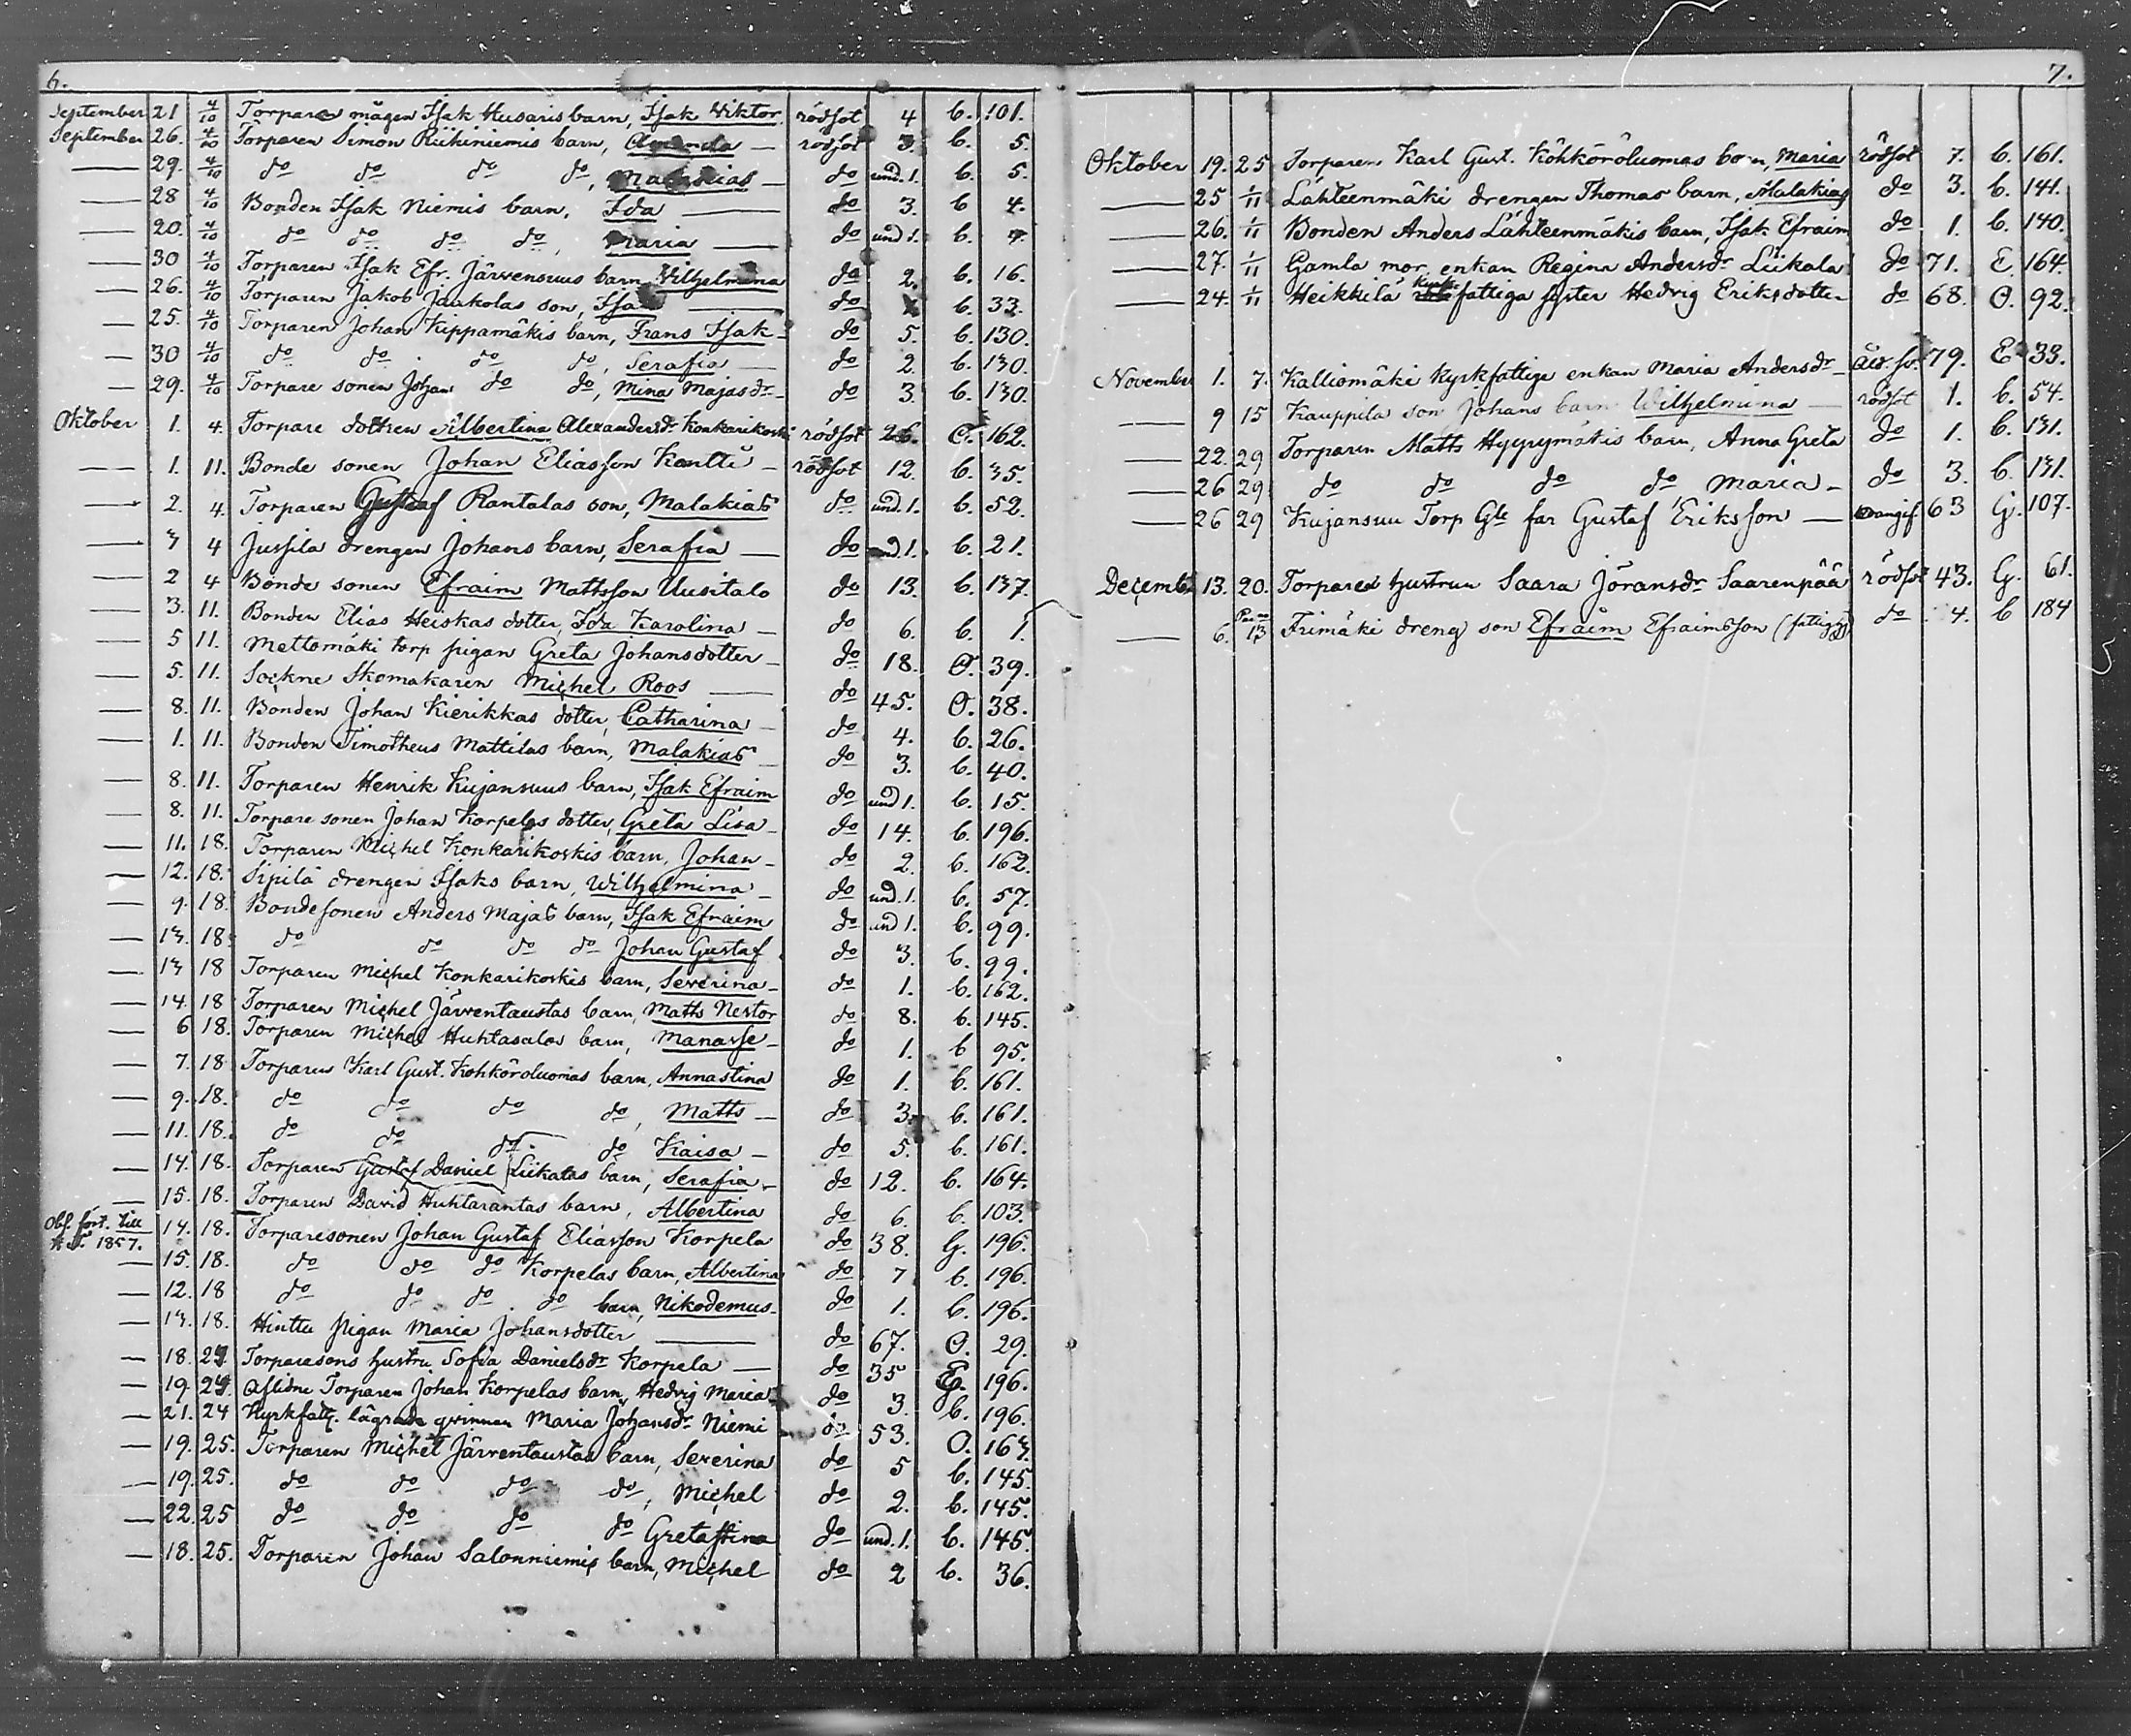 6.
September 21 4/10 Torparen mågen Isak Husaris barn, Isak Wiktor rödsot 4 b. 101.
September 26. 4/10 Torparen Simon Riihiniemis barn, Amanda — rödsot 3. b. 5.
— 29. 4/10 do do do do, Malakias — do und. 1. b. 5.
— 28 4/10 Bonden Isak Niemis barn, Ida — do 3. b 4.
— 20. 4/10 do do do do, Maria — do und 1. b. 4.
— 30 4/10 Torparen Isak Efr. Järvensuus barn, Wilhelmina do 2. b. 16.
— 26. 4/10 Torparen Jakob Jaakolas son, Isak — do b. 33.
— 25. 4/10 Torparen Johan Kippamäkis barn, Frans Isak — do 5. b. 130.
— 30 4/10 do do do do, Serafia — do 2. b. 130.
— 29. 4/10 Torpare sonen Johan do do, Mina Majasdr — do 3. b. 130.
Oktober 1. 4. Torpare dottren Albertina Alexandersdr Konkarikoski rödsot 26. O. 162.
— 1. 11. Bonde sonen Johan Eliasson Kontti — rödsot 12. b. 35.
— 2. 4. Torparen Gustaf Rantalas son, Malakias do und. 1. b. 52.
— 3 4 Jussila drengen Johans barn, Serafia — do und 1. b. 21.
— 2 4 Bonde sonen Efraim Mattsson Uusitalo do 13. b. 137.
— 3. 11. Bonden Elias Heiskas dotter, Ida Karolina — do 6. b. 1.
— 5 11. Mettomäki torp pigan Greta Johansdotter — do 18. O. 39.
— 5. 11. Sockne Skomakaren Michel Roos — do 45. O. 38.
— 8. 11. Bonden Johan Kierikkas dotter, Catharina — do 4. b. 26.
— 1. 11. Bonden Timotheus Mattilas barn, Malakias — do 3. b. 40.
— 8. 11. Torparen Henrik Kujansuus barn, Isak Efraim do und 1. b. 15.
— 8. 11. Torpare sonen Johan Korpelas dotter, Greta Lisa — do 14. b. 196.
— 11. 18. Torparen Michel Konkarikoskis barn, Johan — do 2. b. 162.
— 12. 18. Sipilä drengen Isaks barn, Wilhelmina — do und. 1. b. 57.
— 9. 18. Bondesonen Anders Majas barn, Isak Efraim do und 1. b. 99.
— 13. 18. do do do do Johan Gustaf do 3. b. 99.
— 13 18 Torparen Michel Konkarikoskis barn, Severina — do 1. b. 162.
— 14. 18 Torparen Michel Järventaustas barn, Matts Nestor do 8. b. 145.
— 6 18. Torparen Michel Huhtasalos barn, Manasse — do 1. b 95.
— 7. 18 Torparen Karl Gust. Kohköroluomas barn, Annastina do 1. b. 161.
— 9. 18. do do do do, Matts — do 3. b. 161.
— 11. 18. do do do do Kaisa — do 5. b. 161.
— 14. 18. Torparen Gustaf Daniel Liikalas barn, Serafia — do 12. b. 164.
— 15. 18. Torparen David Huhtarantas barn, Albertina do 6. b. 103.
Obs. fört. till 14. 18. Torparesonen Johan Gustaf Eliasson Korpela do 38. G. 196.
1857.
— 15. 18. do do do Korpelas barn, Albertina do 7 b. 196.
— 12. 18 do do do do barn, Nikodemus — do 1. b. 196.
— 13. 18. Hinttu pigan Maria Johansdotter — do 67. O. 29.
— 18. 24. Torparesons hustru Sofia Danielsdr Korpela — do 35 E. 196.
— 19 24. Aflidne Torparen Johan Korpelas barn, Hedvig Maria do 3. b. 196.
— 21. 24 Kyrkfatt. lägrade qvinnan Maria Johansdr Niemi do 53. O. 163.
— 19. 25. Torparen Michel Järventaustas barn, Severina do 5 b. 145.
— 19. 25. do do do do, Michel do 2. b. 145.
— 22. 25 do do do do Gretastina do und. 1. b. 145.
— 18. 25. Torparen Johan Salonniemis barn, Michel do 2 b. 36.
7.
Oktober 19. 25 Torparen Karl Gust. Köhköröluomas barn, Maria rödsot 7. b. 161.
— 25 1/11 Lähteenmäki drengen Thomas barn, Malakias do 3. b. 141.
— 26. 1/11 Bonden Anders Lähteenmäkis barn, Isak Efraim do 1. b. 140.
— 27. 1/11 Gamla mor enkan Regina Andersdr Liikala do 71. E. 164.
— 24. 1/11 Heikkilä kyrk fattiga syster Hedvig Eriksdotter do 68. O. 92.
November 1. 7. Kalliomäki kyrkfattiga enkan Maria Andersdr — 79. E. 33.
— 9 15 Kauppila son Johans barn Wilhelmina — rödsot 1. b. 54.
— 22. 29 Torparen Matts Hyyrymäkis barn, Anna Greta do 1. b. 131.
— 26 29 do do do do Maria — do 3. b. 131.
— 26 29 Kujansuu Torp Gle far Gustaf Eriksson — 63 G. 107.
December 13. 20. Torpares hustrun Saara Jöransdr Saarenpää rödsot 43. G. 61.
— 6. 13 Frimäki dreng son Efraim Efraimsson (fattig) do 4. b 184